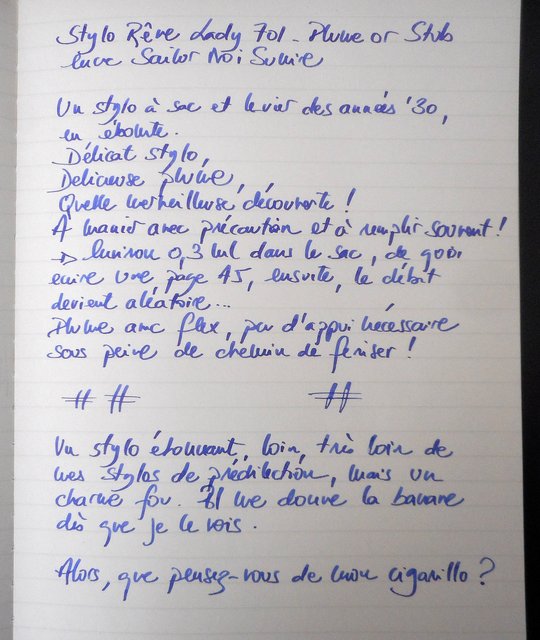 Stylo Rêve Lady 701 - Plume or Stub
Encre Sailor Noi Sumire
Un stylo à sac et levier des années '30,
en ébonite.
Délicat stylo,
Delicieuse plume,
Quelle merveilleuse découverte !
A manier avec précaution et à remplir souvent !
→ Environ 0,3 ml dans le sac, de quoi
écrire une page A5, ensuite, le débit
devient aléatoire...
Plume avec flex, peu d'appui nécessaire
sous peine de chemin de fer
Un stylo étonnant, loin, très loin de
mes stylos de prédilection, mais un
charme fou. Il me donne la banane
dès que je le vois.
Alors, que pensez-vous de mon cigarillo ?